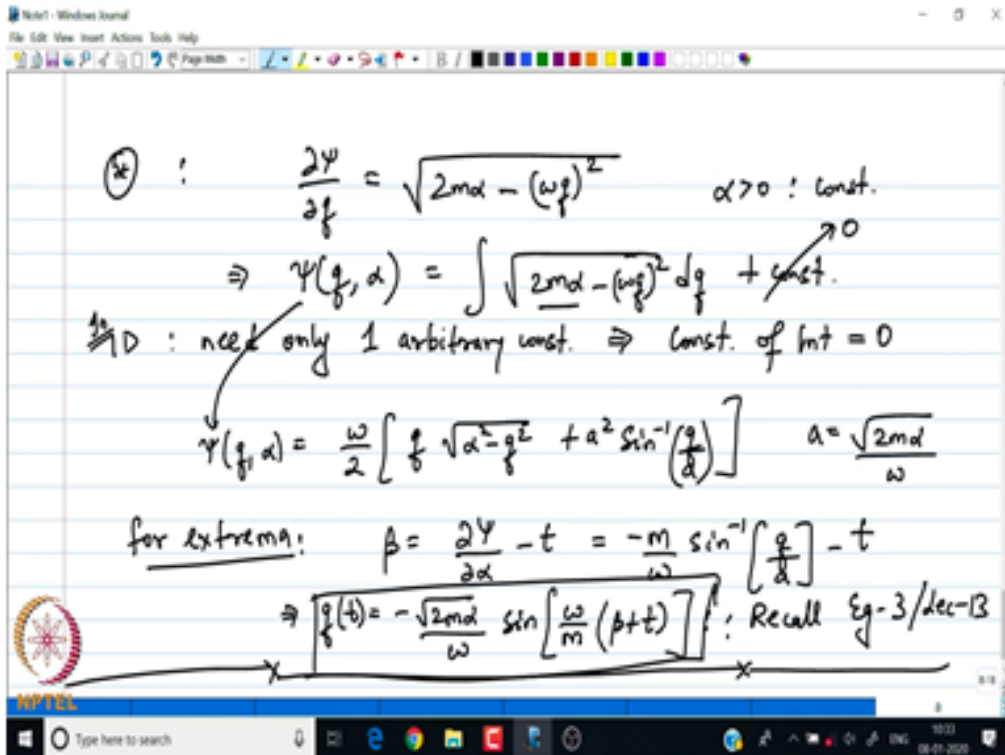 Note1 - Windows Journal
File Edit View Insert Actions Tools Help
Page Width
B I
(*) : ∂Ψ/∂q = √(2mα - (ωq)²) α>0 : const.
⇒ Ψ(q, α) = ∫ √(2mα - (ωq)²) dq + const. 0
1D : need only 1 arbitrary const. ⇒ Const. of Int = 0
Ψ(q, α) = ω/2 [ q √(α² - q²) + a² sin⁻¹(q/a) ] a = √(2mα)/ω
for extrema: β = ∂Ψ/∂α - t = -m/ω sin⁻¹[q/a] - t
⇒ q(t) = - √(2mα)/ω sin[ω/m (β+t)] ! : Recall Eg-3/Lec-13
NPTEL
8/8
8
Type here to search
ENG
10:33
08-01-2020